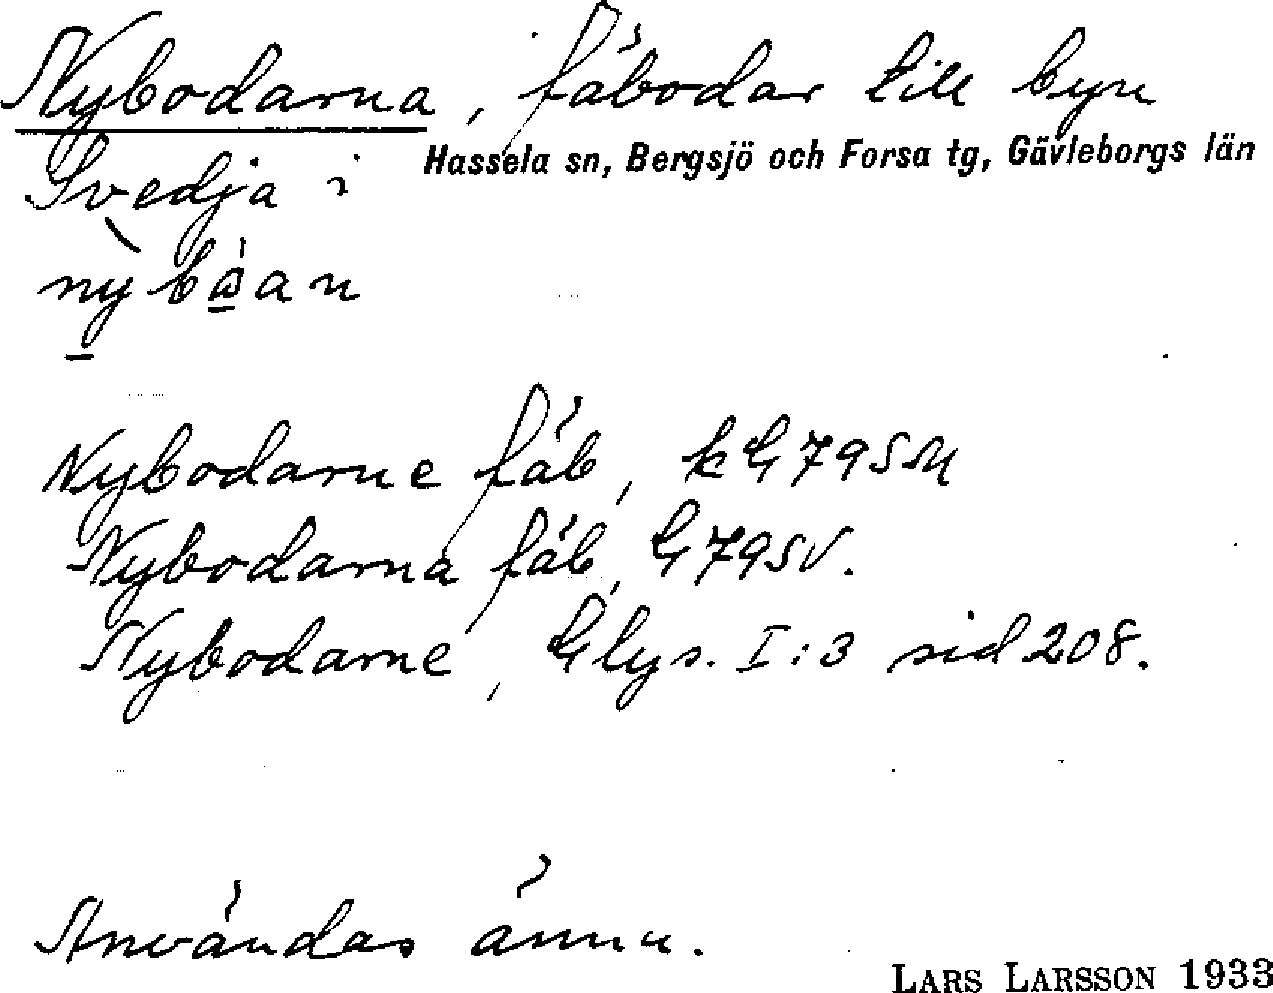 Nybodarna, fäbodar till byn
Svedja i Hassela sn, Bergsjö och Forsa tg, Gävleborgs län
Nybodarne fäb, kG79SM
Nybodarna fäb, G79SV.
Nybodarne, Glys. I:3 sid 208.
Användas ännu.
LARS LARSSON 1933